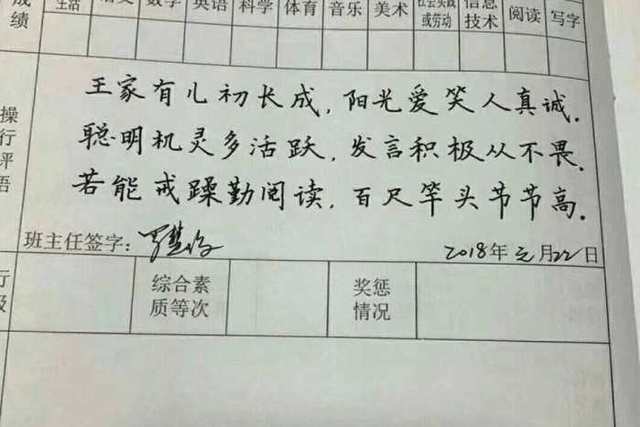 成绩
生活 语文 数学 英语 科学 体育 音乐 美术 社会实践或劳动 信息技术 阅读 写字
操行评语
王家有儿初长成，阳光爱笑人真诚．
聪明机灵多活跃，发言积极从不畏．
若能戒躁勤阅读，百尺竿头节节高．
班主任签字：
2018年元月22日
综合素质等次
奖惩情况